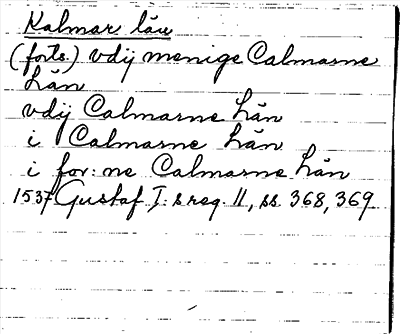 Kalmar län
(forts.) vdij menige Calmarne
Län
vdij Calmarne Län
i Calmarne Län
i for: ne Calmarne Län
1537 Gustaf I:s reg. 11, ss. 368, 369